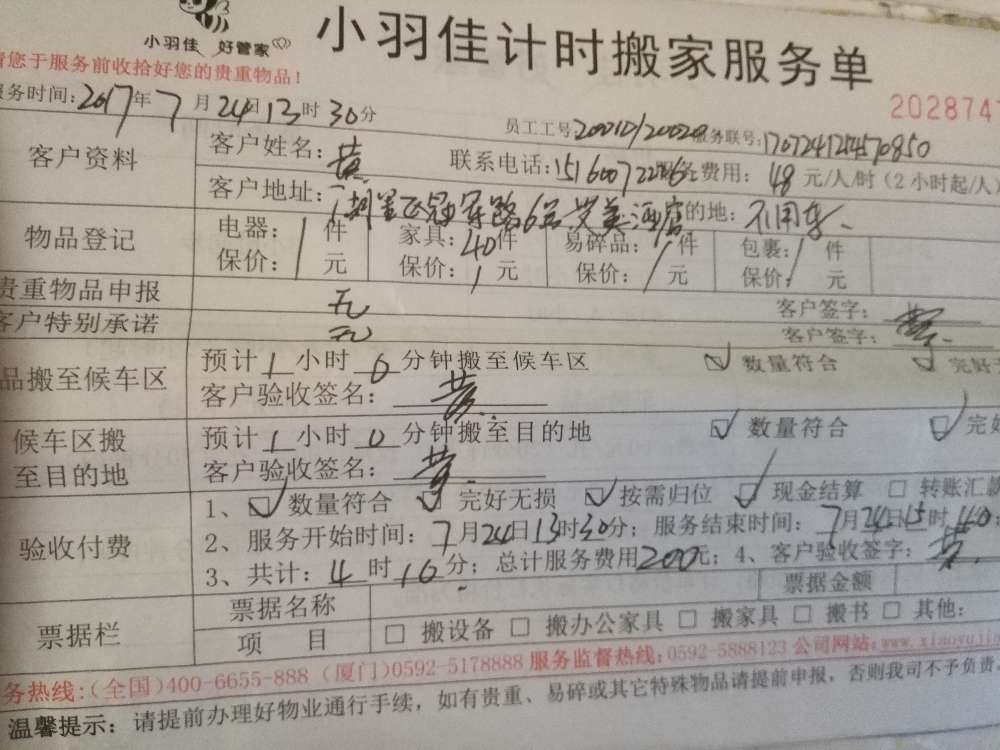 小羽佳 好管家
小羽佳计时搬家服务单
请您于服务前收拾好您的贵重物品!
2028747
服务时间:2017年7月24日13时30分
员工工号:20010/20020 服务联号:
客户资料
客户姓名:黄 联系电话: 服务费用:48元/人/时(2小时起/人)
客户地址: 冠军路6号 酒店 目的地:不用车
物品登记
电器:/件 家具:40件 易碎品:/件 包裹:/件
保价:/元 保价:/元 保价:/元 保价:/元
贵重物品申报 无 客户签字:黄
客户特别承诺 无 客户签字:
物品搬至候车区
预计1小时0分钟搬至候车区 ☑ 数量符合 ☑ 完好
客户验收签名:黄
候车区搬至目的地
预计1小时0分钟搬至目的地 ☑ 数量符合 ☑ 完好
客户验收签名:黄
验收付费
1、☑ 数量符合 ☑ 完好无损 ☑ 按需归位 ☑ 现金结算 □ 转账汇款
2、服务开始时间:7月24日13时30分;服务结束时间:7月24日15时40
3、共计:4时10分;总计服务费用200元;4、客户验收签字:黄
票据栏
票据名称 票据金额
项 目 □ 搬设备 □ 搬办公家具 □ 搬家具 □ 搬书 □ 其他:
服务热线:(全国)400-6655-888 (厦门)0592-5178888 服务监督热线:0592-5888123 公司网站:www.xiaoyujia
温馨提示:请提前办理好物业通行手续,如有贵重、易碎或其它特殊物品请提前申报,否则我司不予负责